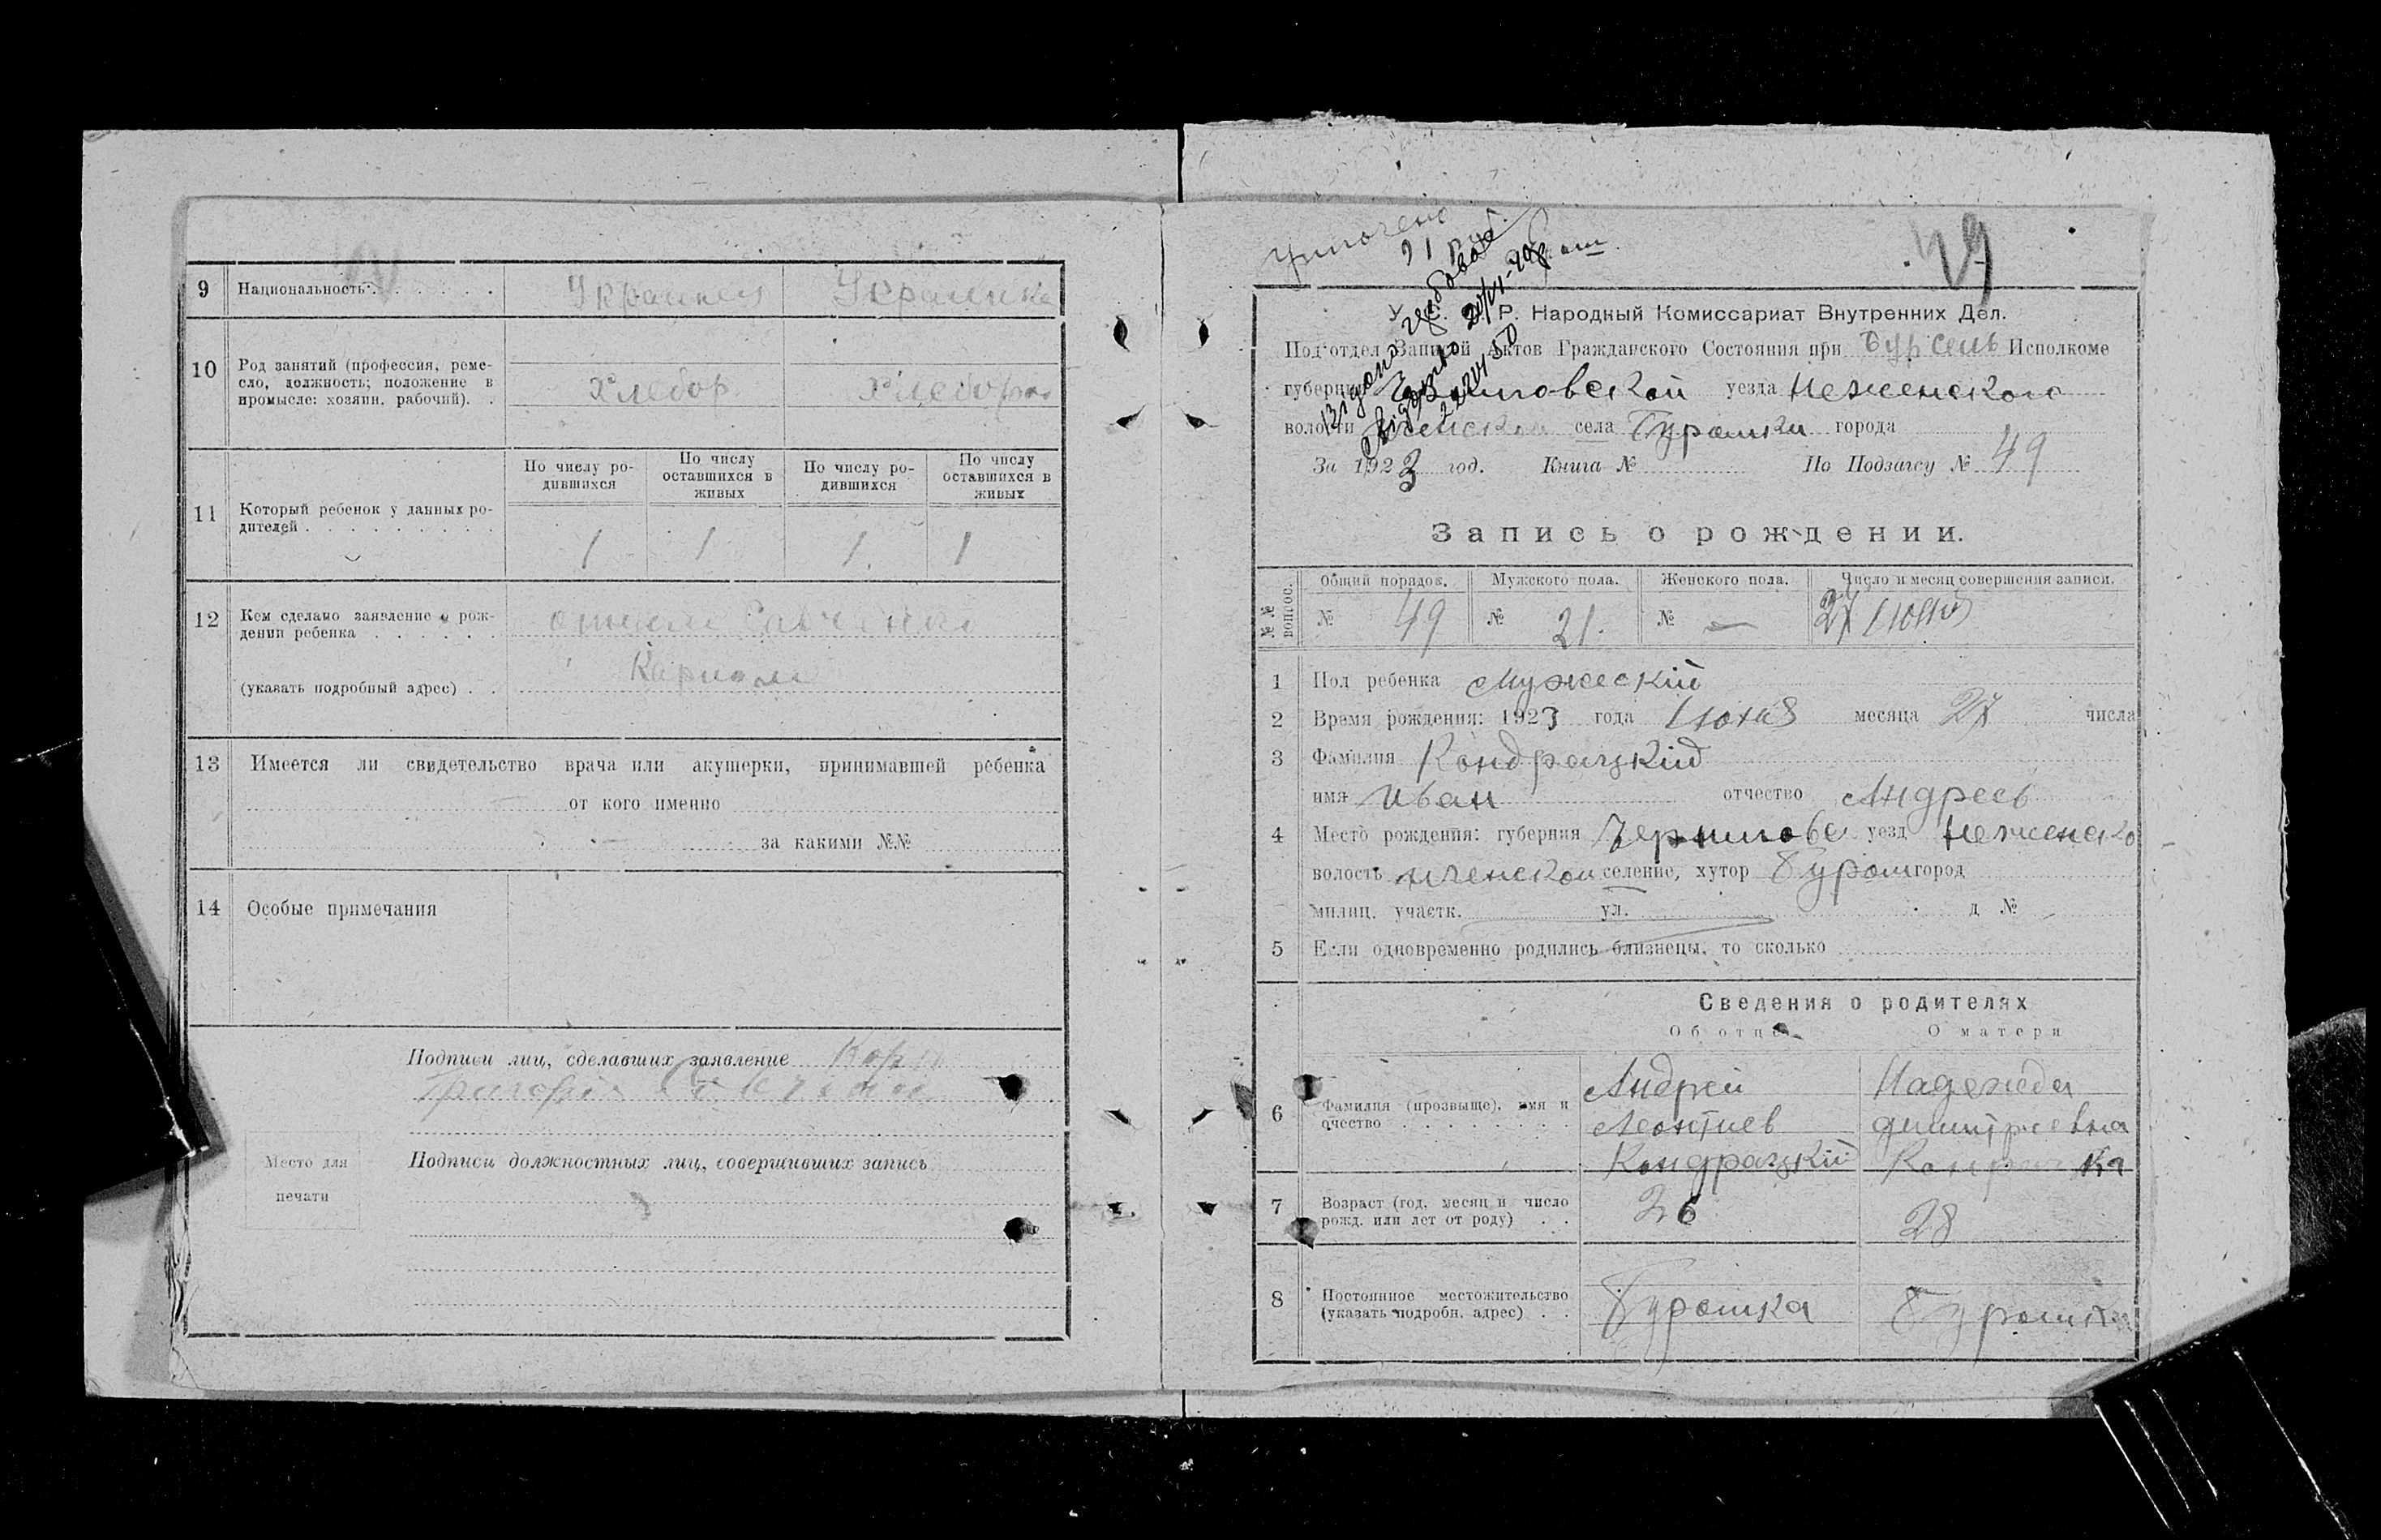 9 Национальность . . . . . . . Украинец Украинка
10 Род занятий (профессия, реме-
сло, должность; положение в
промысле: хозяин, рабочий). . Хлебор Хлебороб
11 Который ребенок у данных ро-
дителей . . . . . . . . .
По числу ро-
дившихся
По числу
оставшихся в
живых
По числу ро-
дившихся
По числу
оставшихся в
живых
1 1 1. 1
12 Кем сделано заявление о рож-
дении ребенка . . . . . .
(указать подробный адрес) . .
13 Имеется ли свидетельство врача или акушерки, принимавшей ребенка
от кого именно
за какими №№
14 Особые примечания
Подписи лиц, сделавших заявление
Место для
печати
Подписи должностных лиц, совершивших запись
49
Р. Народный Комиссариат Внутренних Дел.
Под'отдел Записей Актов Гражданского Состояния при Бурсель Исполкоме
губернии Черниговской уезда Неженского
волости села Буромки города
За 1923 год. Книга № По Подзагсу № 49
Запись о рождении.
№№ вопрос. Общий порядок. Мужского пола. Женского пола. Число и месяц совершения записи.
№ 49 № 21. № — 27 Июня
1 Пол ребенка Мужеский
2 Время рождения: 1923 года Июня месяца 27 числа
3 Фамилия Кондрацкий
имя Иван отчество Андреев
4 Место рождения: губерния Чернигове уезд Неженско
волость Иченской селение, хутор Буром город
милиц. участк. ул. д №
5 Если одновременно родились близнецы, то сколько
Сведения о родителях
Об отце О матери
6 Фамилия (прозвыще), имя и
очество . . . . . . . .
Андрей
Леонтиев
Кондрацкий
Надежда
Димитриевна
7 Возраст (год, месяц и число
рожд. или лет от роду) . . 26 28
8 Постоянное местожительство
(указать подробн. адрес) . . Буромка Буромка